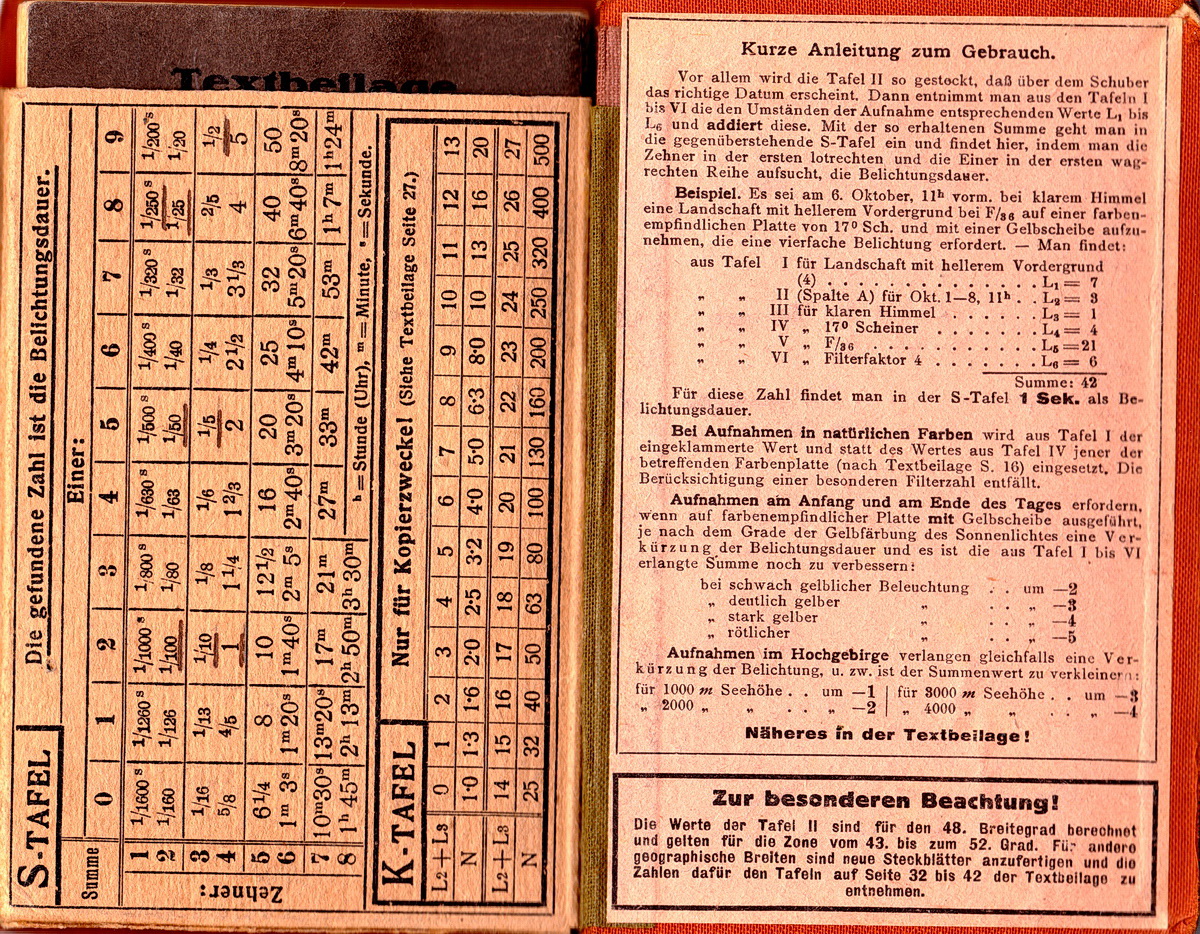 Textbeilage
S-TAFEL
Die gefundene Zahl ist die Belichtungsdauer.
Summe
Einer:
0 1 2 3 4 5 6 7 8 9
Zehner:
1 1/1600 s 1/1260 s 1/1000 s 1/800 s 1/630 s 1/500 s 1/400 s 1/320 s 1/250 s 1/200 s
2 1/160 1/126 1/100 1/80 1/63 1/50 1/40 1/32 1/25 1/20
3 1/16 1/13 1/10 1/8 1/6 1/5 1/4 1/3 2/5 1/2
4 5/8 4/5 1 1 1/4 1 2/3 2 2 1/2 3 1/3 4 5
5 6 1/4 8 10 12 1/2 16 20 25 32 40 50
6 1m 3s 1m 20s 1m 40s 2m 5s 2m 40s 3m 20s 4m 10s 5m 20s 6m 40s 8m 20s
7 10m 30s 13m 20s 17m 21m 27m 33m 42m 53m 1h 7m 1h 24m
8 1h 45m 2h 13m 2h 50m 3h 30m
h = Stunde (Uhr), m = Minute, s = Sekunde.
K-TAFEL
Nur für Kopierzwecke! (Siehe Textbeilage Seite 27.)
L2 + L3 0 1 2 3 4 5 6 7 8 9 10 11 12 13
N 1·0 1·3 1·6 2·0 2·5 3·2 4·0 5·0 6·3 8·0 10 13 16 20
L2 + L3 14 15 16 17 18 19 20 21 22 23 24 25 26 27
N 25 32 40 50 63 80 100 130 160 200 250 320 400 500
Kurze Anleitung zum Gebrauch.
Vor allem wird die Tafel II so gesteckt, daß über dem Schuber
das richtige Datum erscheint. Dann entnimmt man aus den Tafeln I
bis VI die den Umständen der Aufnahme entsprechenden Werte L1 bis
L6 und addiert diese. Mit der so erhaltenen Summe geht man in
die gegenüberstehende S-Tafel ein und findet hier, indem man die
Zehner in der ersten lotrechten und die Einer in der ersten wag-
rechten Reihe aufsucht, die Belichtungsdauer.
Beispiel. Es sei am 6. Oktober, 11h vorm. bei klarem Himmel
eine Landschaft mit hellerem Vordergrund bei F/36 auf einer farben-
empfindlichen Platte von 17° Sch. und mit einer Gelbscheibe aufzu-
nehmen, die eine vierfache Belichtung erfordert. — Man findet:
aus Tafel I für Landschaft mit hellerem Vordergrund
(4) . . . . . . . . . . . . . . . L1 = 7
„ „ II (Spalte A) für Okt. 1–8, 11h . . L2 = 3
„ „ III für klaren Himmel . . . . . . L3 = 1
„ „ IV „ 17° Scheiner . . . . . . . L4 = 4
„ „ V „ F/36 . . . . . . . . . . . L5 = 21
„ „ VI „ Filterfaktor 4 . . . . . . . L6 = 6
Summe: 42
Für diese Zahl findet man in der S-Tafel 1 Sek. als Be-
lichtungsdauer.
Bei Aufnahmen in natürlichen Farben wird aus Tafel I der
eingeklammerte Wert und statt des Wertes aus Tafel IV jener der
betreffenden Farbenplatte (nach Textbeilage S. 16) eingesetzt. Die
Berücksichtigung einer besonderen Filterzahl entfällt.
Aufnahmen am Anfang und am Ende des Tages erfordern,
wenn auf farbenempfindlicher Platte mit Gelbscheibe ausgeführt,
je nach dem Grade der Gelbfärbung des Sonnenlichtes eine Ver-
kürzung der Belichtungsdauer und es ist die aus Tafel I bis VI
erlangte Summe noch zu verbessern:
bei schwach gelblicher Beleuchtung . . um —2
„ deutlich gelber „ . . „ —3
„ stark gelber „ . . „ —4
„ rötlicher „ . . „ —5
Aufnahmen im Hochgebirge verlangen gleichfalls eine Ver-
kürzung der Belichtung, u. zw. ist der Summenwert zu verkleinern:
für 1000 m Seehöhe . . um —1 | für 3000 m Seehöhe . . um —3
„ 2000 „ „ . . „ —2 | „ 4000 „ „ . . „ —4
Näheres in der Textbeilage!
Zur besonderen Beachtung!
Die Werte der Tafel II sind für den 48. Breitegrad berechnet
und gelten für die Zone vom 43. bis zum 52. Grad. Für andere
geographische Breiten sind neue Steckblätter anzufertigen und die
Zahlen dafür den Tafeln auf Seite 32 bis 42 der Textbeilage zu
entnehmen.